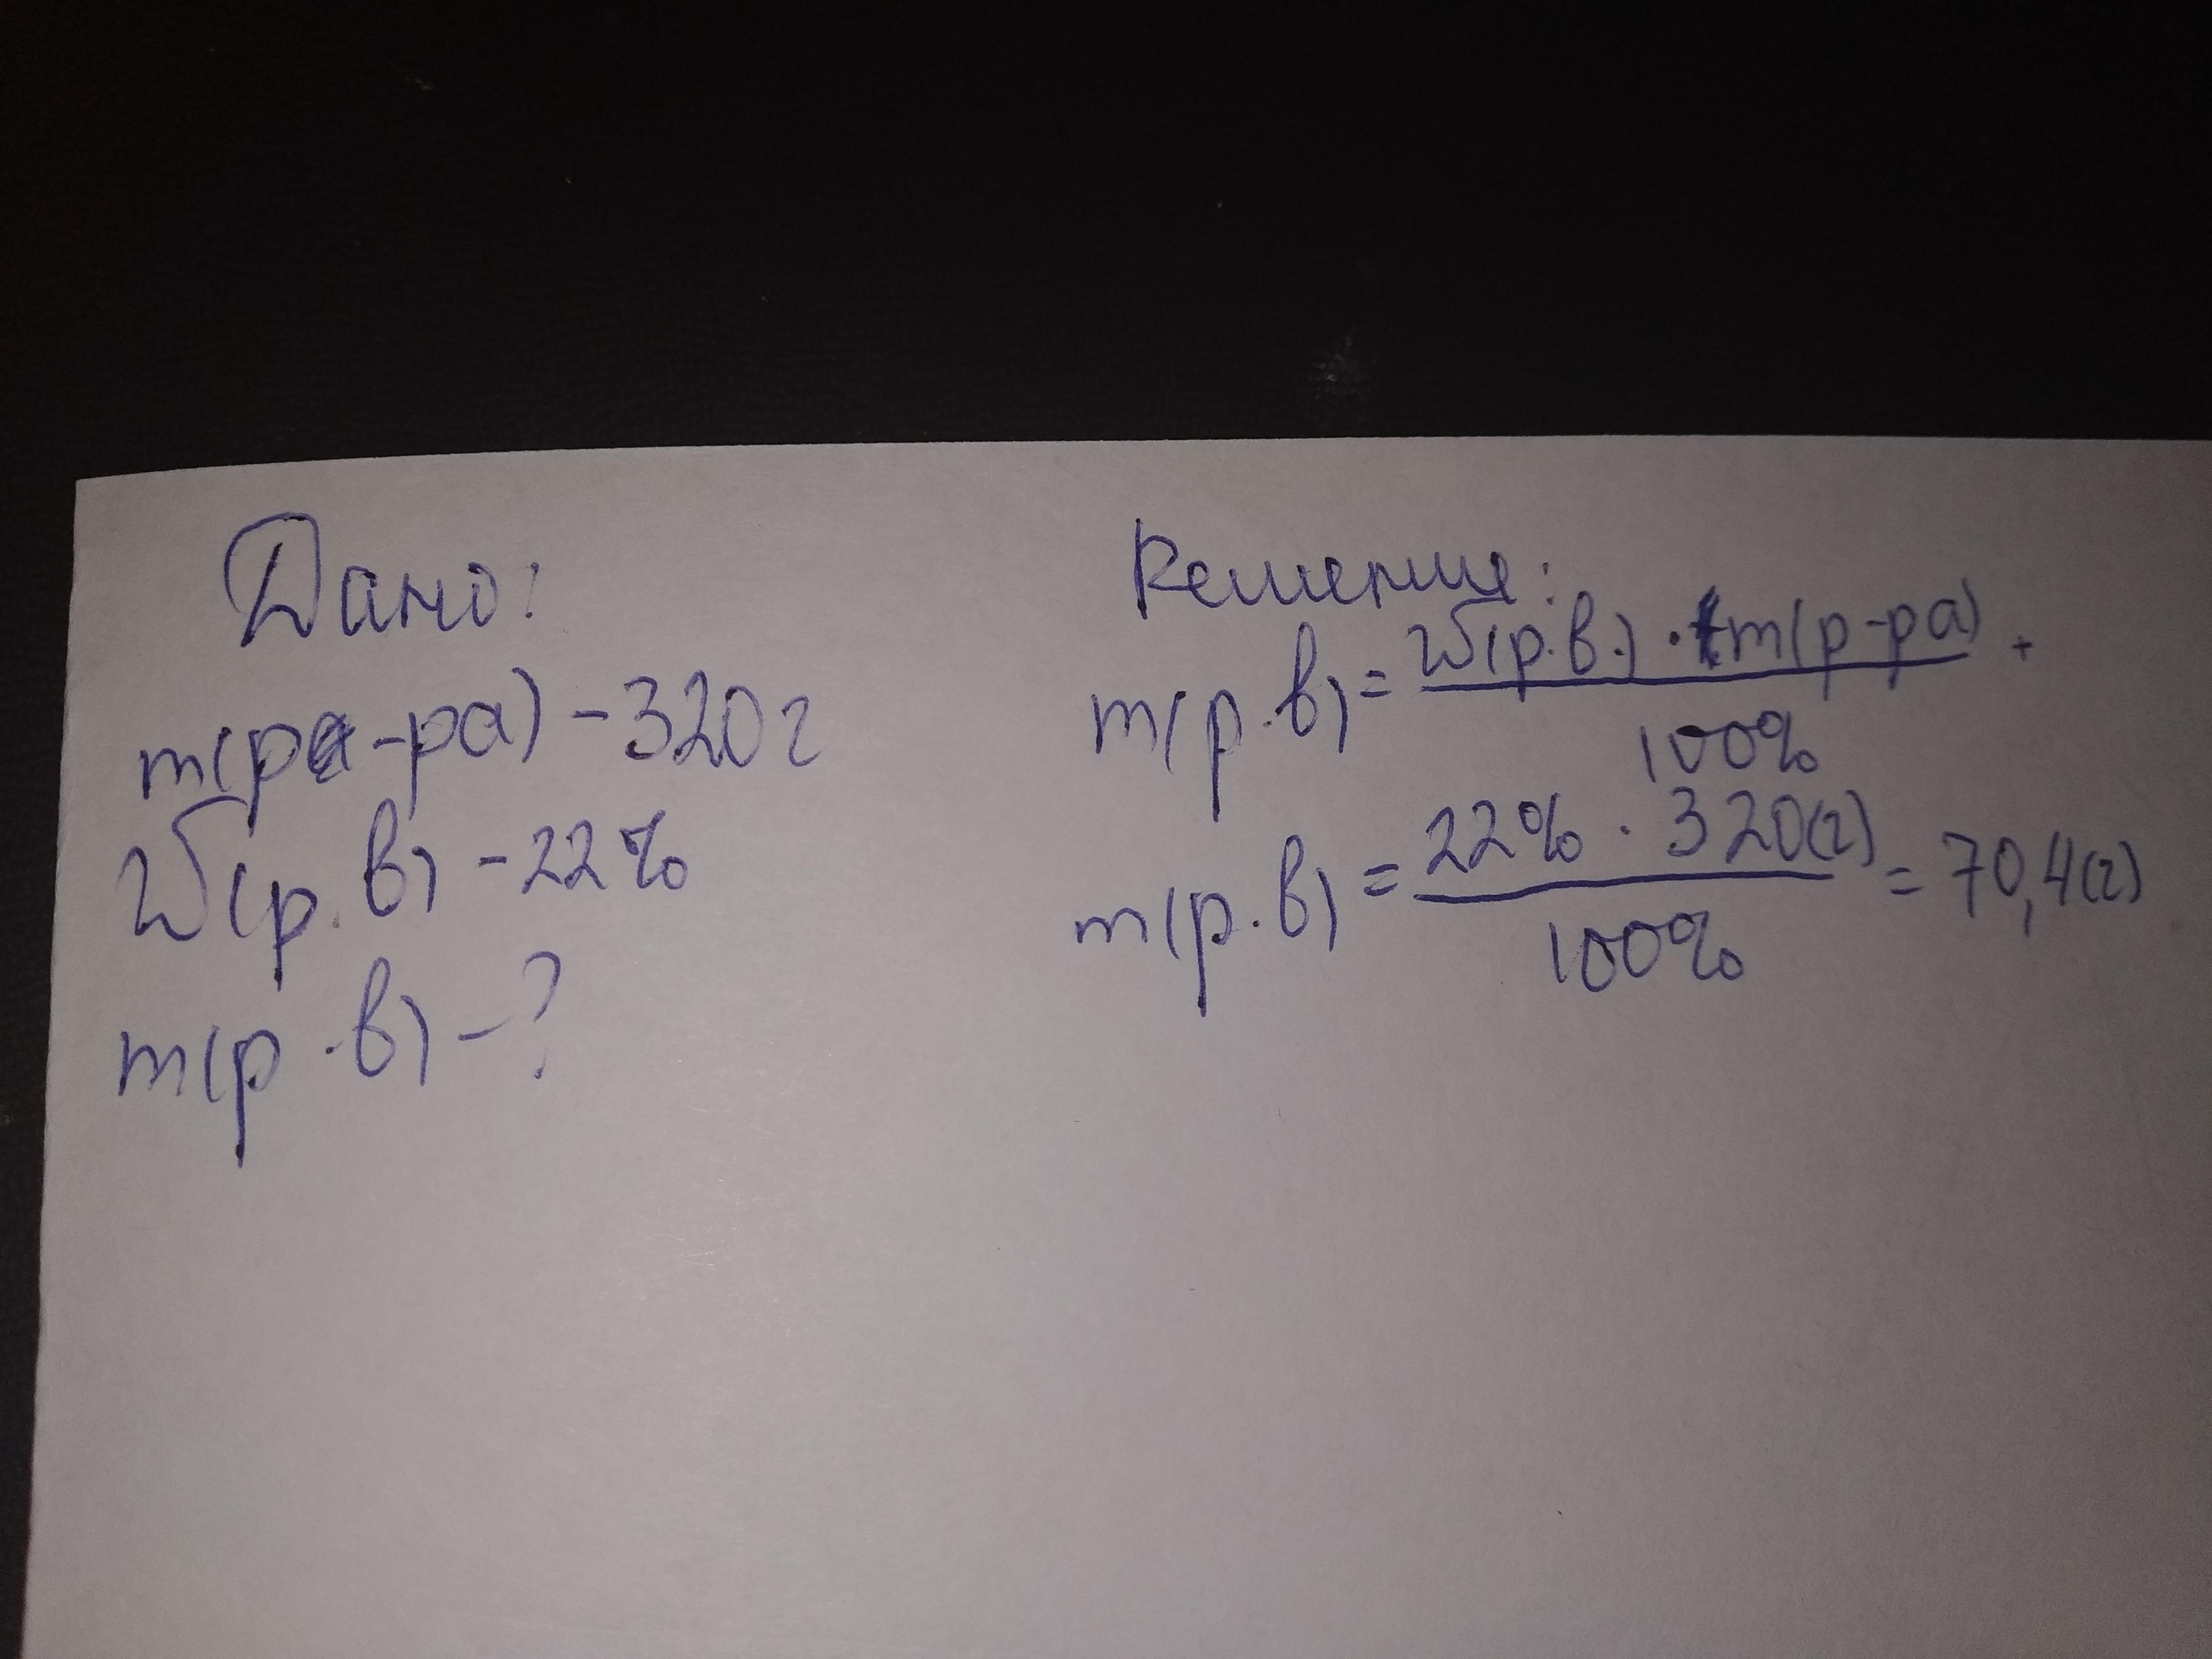 Дано:
m(р-ра) - 320 г
W(р.в) - 22%
m(р.в) - ?
Решение:
m(р.в) = W(р.в.) · m(р-ра)
100%
m(р.в) = 22% · 320(г) = 70,4(г)
100%